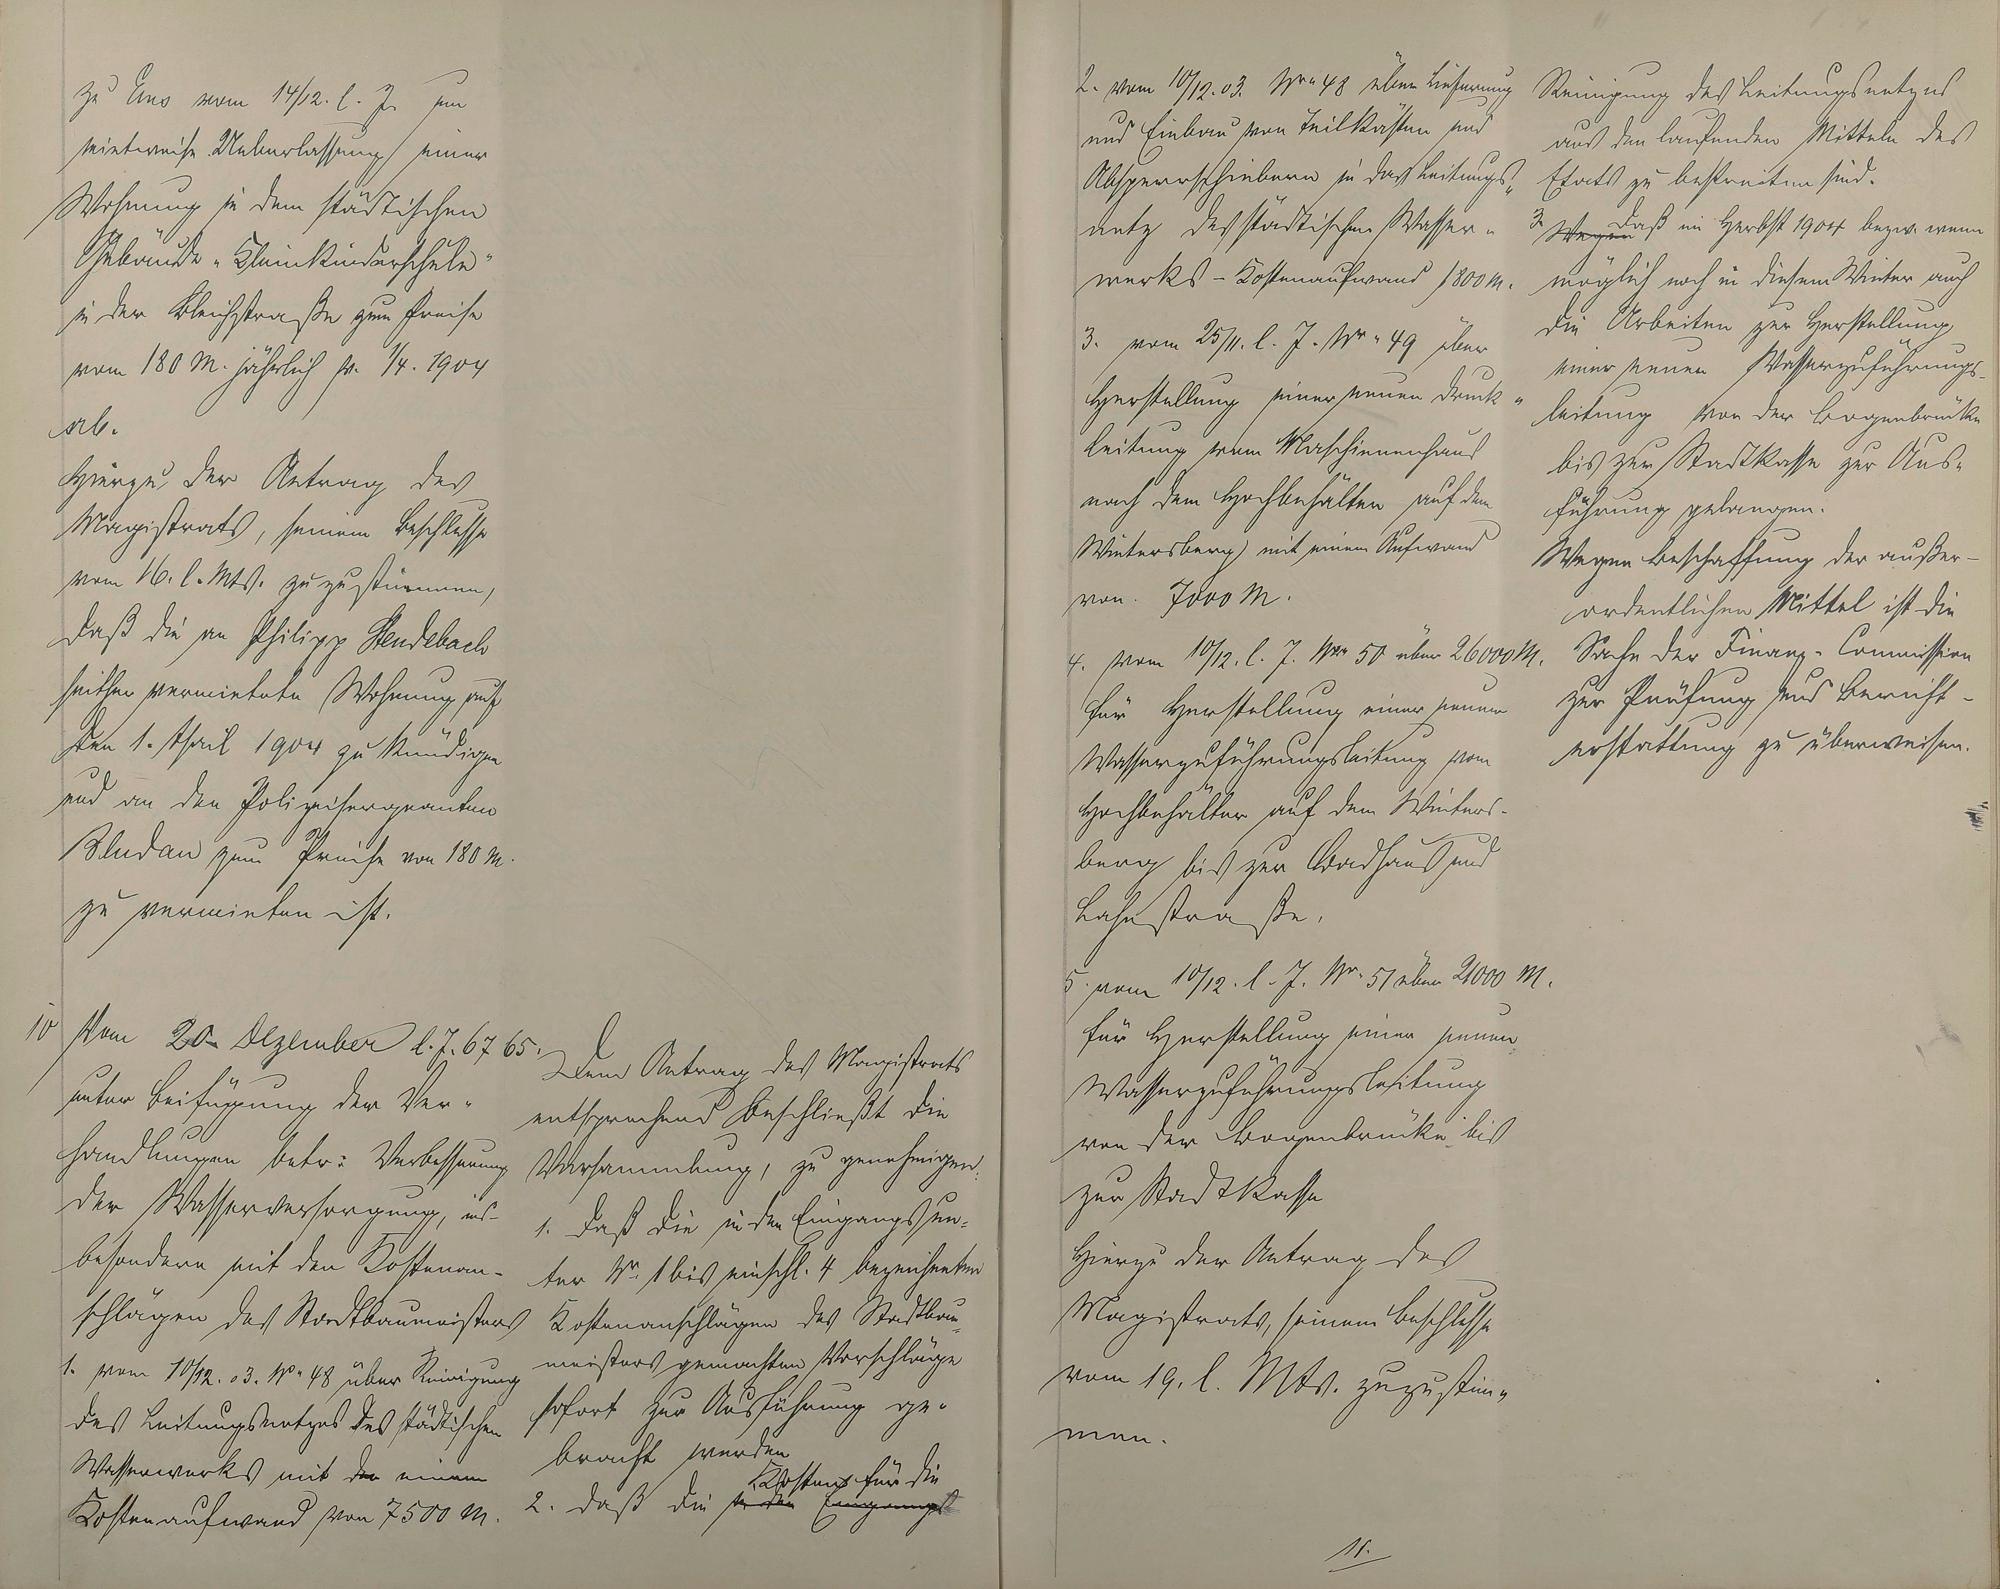 zu Ems vom 14/12. l. J. um
mietweise Ueberlassung einer
Wohnung in dem städtischen
Gebäude "Kleinkinderschule"
in der Bleichstraße zum Preise
vom 180 M. jährlich p. 1/4. 1904
ab.
Hierzu der Antrag des
Magistrats, seinem Beschlusse
vom 16. l. Mts. zuzustimmen,
daß die an Philipp Stendebach
seither vermietete Wohnung auf
den 1. April 1904 zu kündigen
und an den Polizeisergeanten
zum Preise von 180 M.
zu vermieten ist.
10 Vom 20. Dezember l. J. 6765.
unter Beifügung der Ver-
handlungen betr: Verbesserung
der Wasserversorgung, ins-
besondere mit den Kostenan-
schlägen des Stadtbaumeisters
1. vom 10/12. 03. No. 48 über Reinigung
des Leitungsnetzes des städtischen
Wasserwerks mit den einem
Kostenaufwand von 7500 M.
Dem Antrag des Magistrats
entsprechend beschließt die
Versammlung, zu genehmigen:
1. daß die in den Eingangs un-
ter Nr. 1 bis einschl. 4 bezeichneten
Kostenanschlägen des Stadtbau-
meisters gemachten Vorschläge
sofort zur Ausführung ge-
bracht werden
Kosten für die
2. daß die in den Eingangs
2. vom 10/12. 03. Nr. 48 über Lieferung
und Einbau von Teilkästen und
Absperrschiebern in das Leitungs-
netz des städtischen Wasser-
werks - Kostenaufwand 1800 M.
3. vom 25/11. l. J. Nr. 49 über
Herstellung einer neuen Druck-
leitung vom Maschinenhaus
nach dem Hochbehälter auf dem
Wintersberg mit einem Aufwand
von 7000 M.
4. vom 10/12. l. J. Nr. 50 über 26000 M.
für Herstellung einer neuen
Wasserzuführungsleitung vom
Hochbehälter auf dem Winters-
berg bis zur Badhaus und
Lahnstraße.
5. vom 10/12. l. J. Nr. 51 über 21000 M.
für Herstellung einer neuen
Wasserzuführungsleitung
von der Bogenbrücke bis
zur Stadtkasse
Hierzu der Antrag des
Magistrats, seinem Beschlusse
vom 19. l. Mts. zuzustim-
men.
Reinigung des Leitungsnetzes
aus den laufenden Mitteln des
Etats zu bestreiten sind.
3. Wegen Daß im Herbst 1904 bezw. wenn
möglich noch in diesem Winter auch
die Arbeiten zur Herstellung
einer neuen Wasserzuführungs-
leitung von der Bogenbrücke
bis zur Stadtkasse zur Aus-
führung gelangen.
Wegen Beschaffung der außer-
ordentlichen Mittel ist die
Sache der Finanz-Commission
zur Prüfung und Bericht-
erstattung zu überweisen.
11.